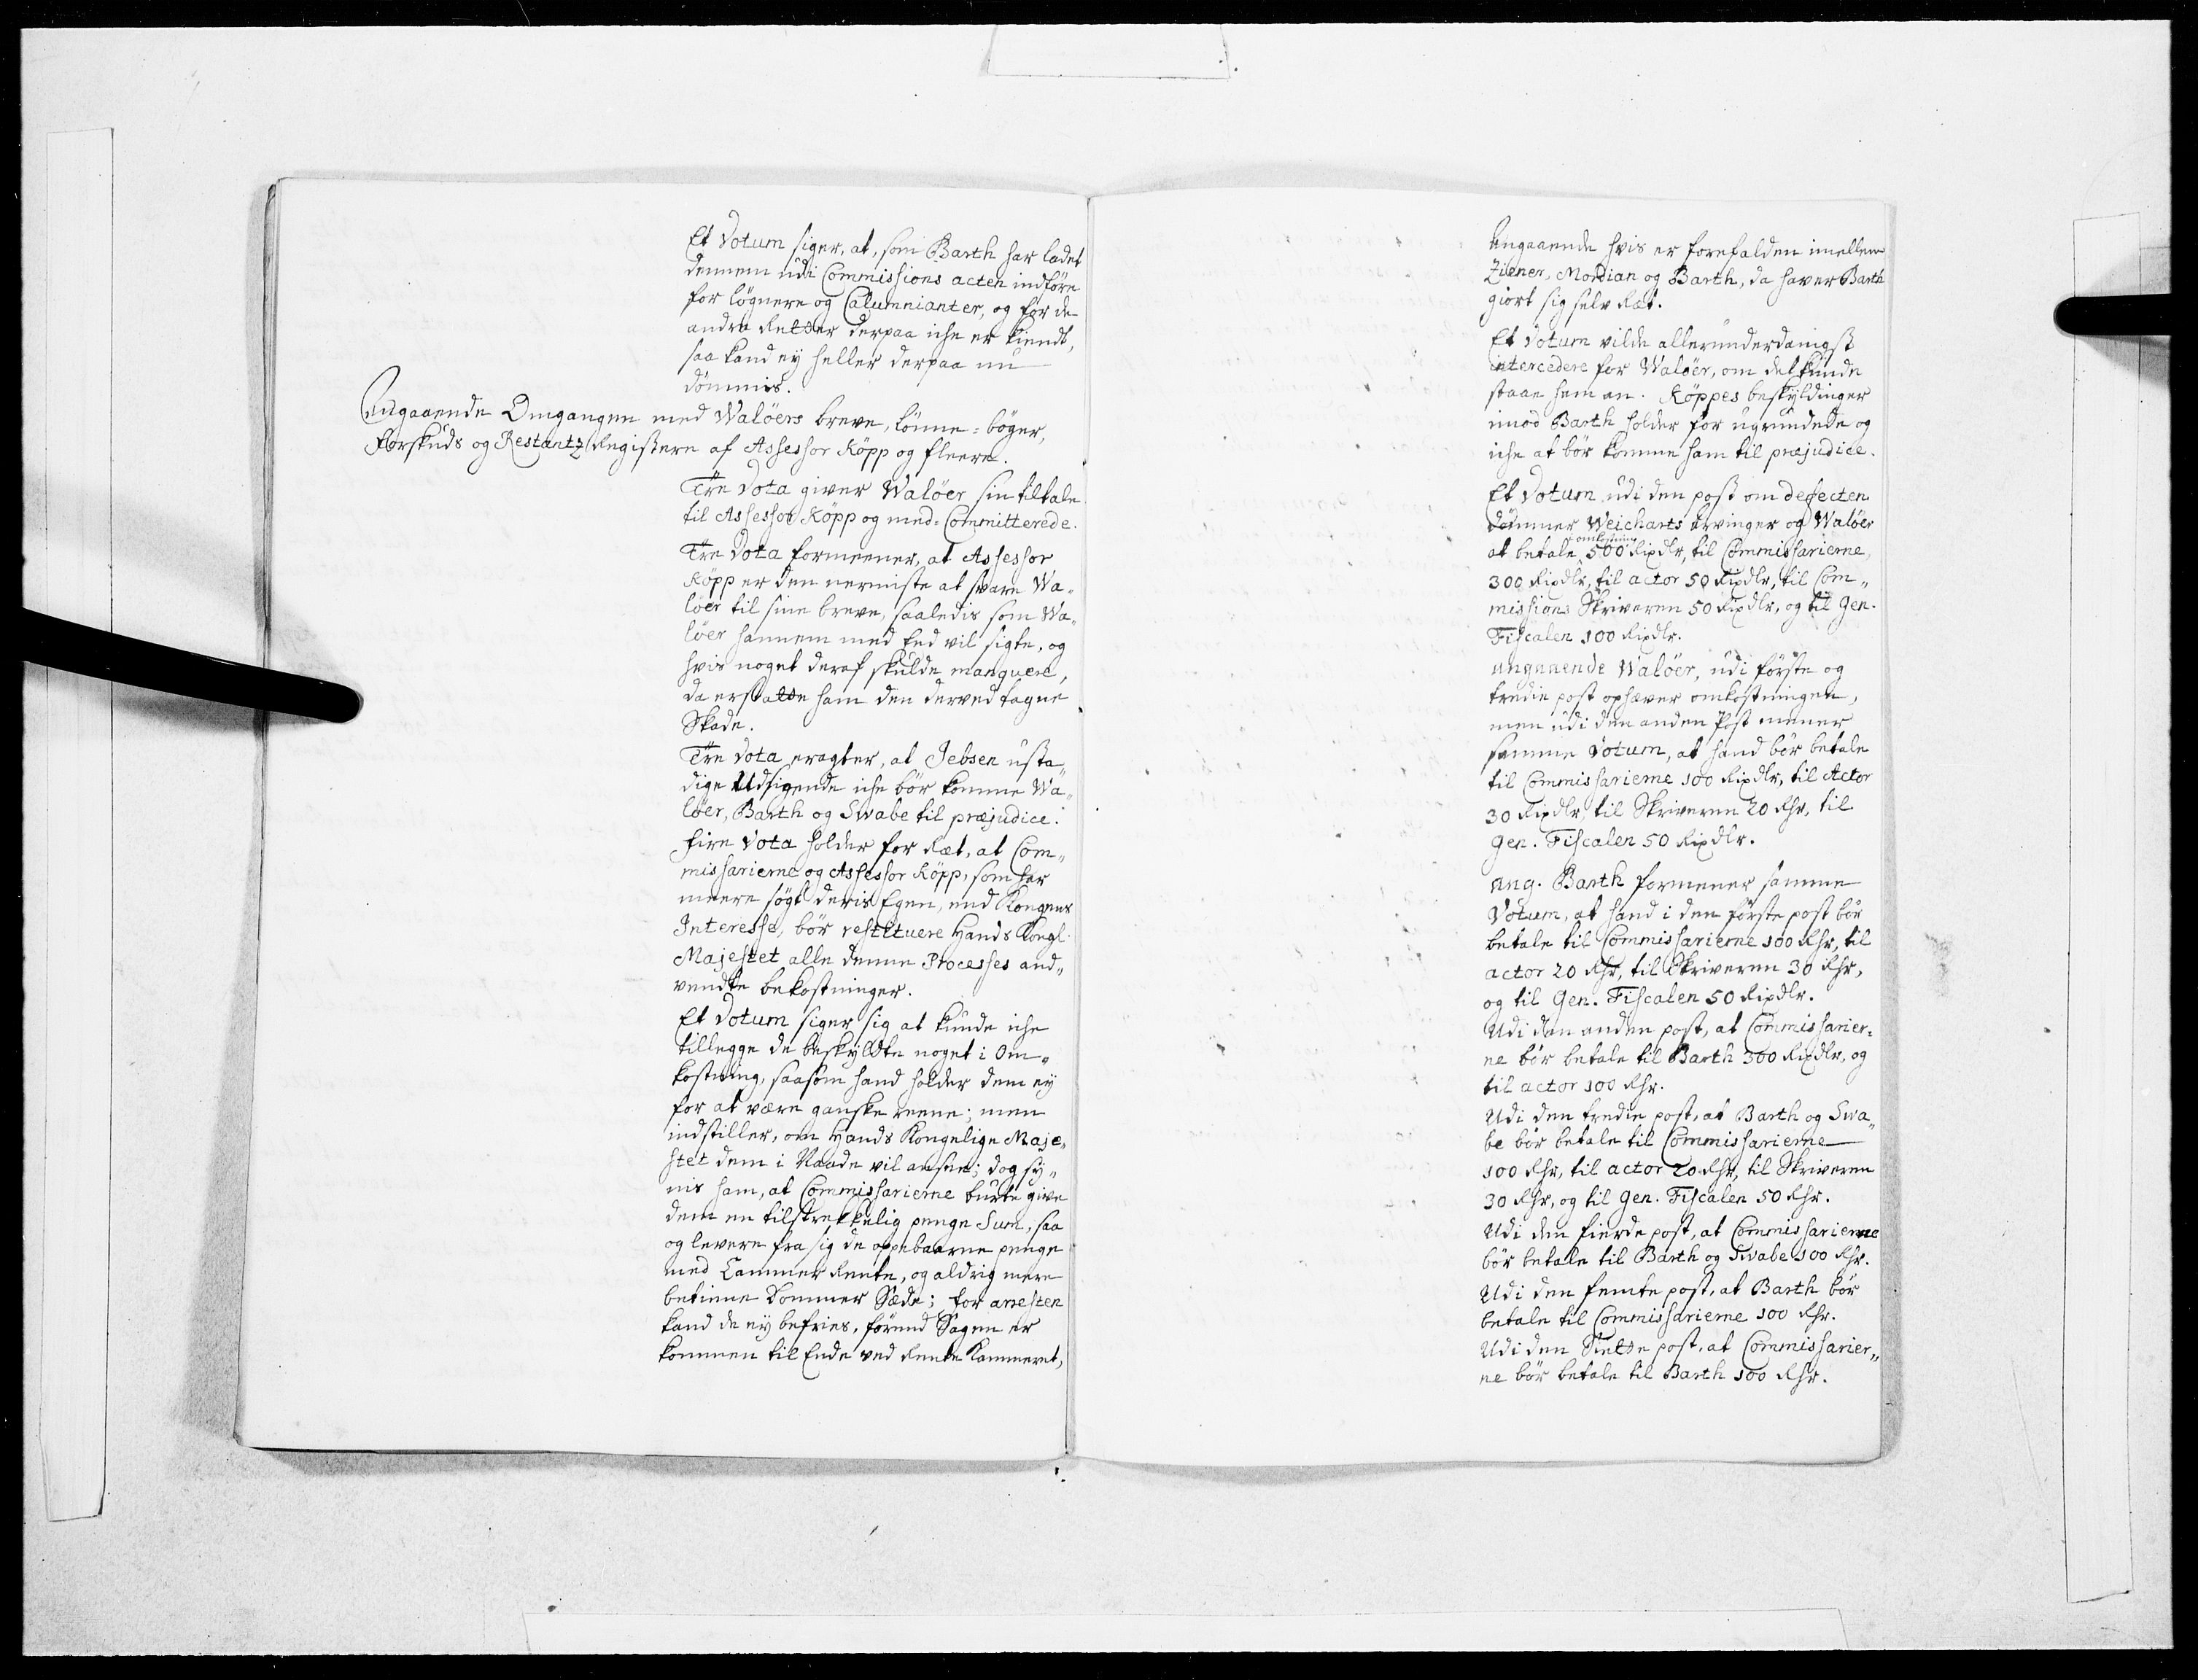 Et Votum siger, at, som Barth har ladet
dennem udi Commissions acten indføre
for løgnere og Calumnianter, og for de
andre Retter derpaa iche er kiendt,
saa kand ej heller derpaa nu
dømmis.
Angaaende Omgangen med Waløers breve, lønne-bøger,
Forskuds og Restantz Registere af Assessor Köpp og fleere.
Tre Vota giver Waløer sin tiltale
til Assessor Köpp og med-Committerede.
Tre Vota formeener, at Assessor
Köpp er den nermiste at svare Wa„
løer til sine breve, saaledis som Wa„
løer hannem med Eed vil sigte, og
hvis noget deraf skulde manquere,
da erstatte ham den derved tagne
Skade.
Tre Vota eragter, at Jebsen usta„
dige Udsigende iche bør komme Wa„
løer, Barth og Swabe til præjudice.
Fire Vota holder for Ræt, at Com„
missarierne og Assessor Köpp, som har
meere søgt deris Egen, end Kongens
Interesse, bør restituere Hands Kongl.
Majestet alle denne Processes and„
vendte bekostninger.
Et Votum siger sig at kunde iche
tillegge de beskyldte noget i Om„
kostning, saasom hand holder dem ej
for at være ganske reene; men
indstiller, om Hands Kongelige Maje„
stet dem i Naade vil ansee; dog sy„
nis ham, at Commissarierne burte give
dem en tilstrekkelig penge Sum, saa
og levere fra sig de oppebaarne penge
med Cammer Rente, og aldrig mere
betiene Dommer Sæde; for arresten
kand de ej befries, førend Sagen er
kommen til Ende ved Rente Kammeret,
Angaaende hvis er forefalden imellem
Zilener, Mordian og Barth, da haver Barth
giort sig selv Ræt.
Et Votum vilde allerunderdanigst
intercedere for Waløer, om det kunde
staae ham an. Köppes beskyldinger
imod Barth holder for ugrundede og
iche at bør komme ham til præjudice.
Et Votum udi den post om defecten
dømmer Weicharts arvinger og Waløer
at betale i omkostning 500 Rixdlr, til Commissarierne
300 Rixdlr, til actor 50 Rixdlr, til Com„
missions Skriveren 50 Rixdlr, og til Gen.
Fiscalen 100 Rixdlr.
angaaende Waløer, udi første og
tredie post ophæver omkostningen,
men udi den anden Post mener
samme Votum, at hand bør betale
til Commissarierne 100 Rixdlr, til Actor
30 Rixdlr, til Skriveren 20 Rhr, til
Gen. Fiscalen 50 Rixdlr.
ang. Barth formener samme
Votum, at hand i den første post bør
betale til Commissarierne 100 Rhr, til
actor 20 Rhr, til Skriveren 30 Rhr,
og til Gen. Fiscalen 50 Rixdlr.
Udi den anden post, at Commissarier-
ne bør betale til Barth 300 Rixdlr, og
til actor 100 Rhr.
Udi den tredie post, at Barth og Swa„
be bør betale til Commissarierne
100 Rhr, til actor 20 Rhr, til Skriveren
30 Rhr, og til Gen. Fiscalen 50 Rhr.
Udi den fierde post, at Commissarierne
bør betale til Barth og Swabe 100 Rhr.
Udi den femte post, at Barth bør
betale til Commissarierne 100 Rhr.
Udi den Siette post, at Commissarier„
ne bør betale til Barth 100 Rhr.